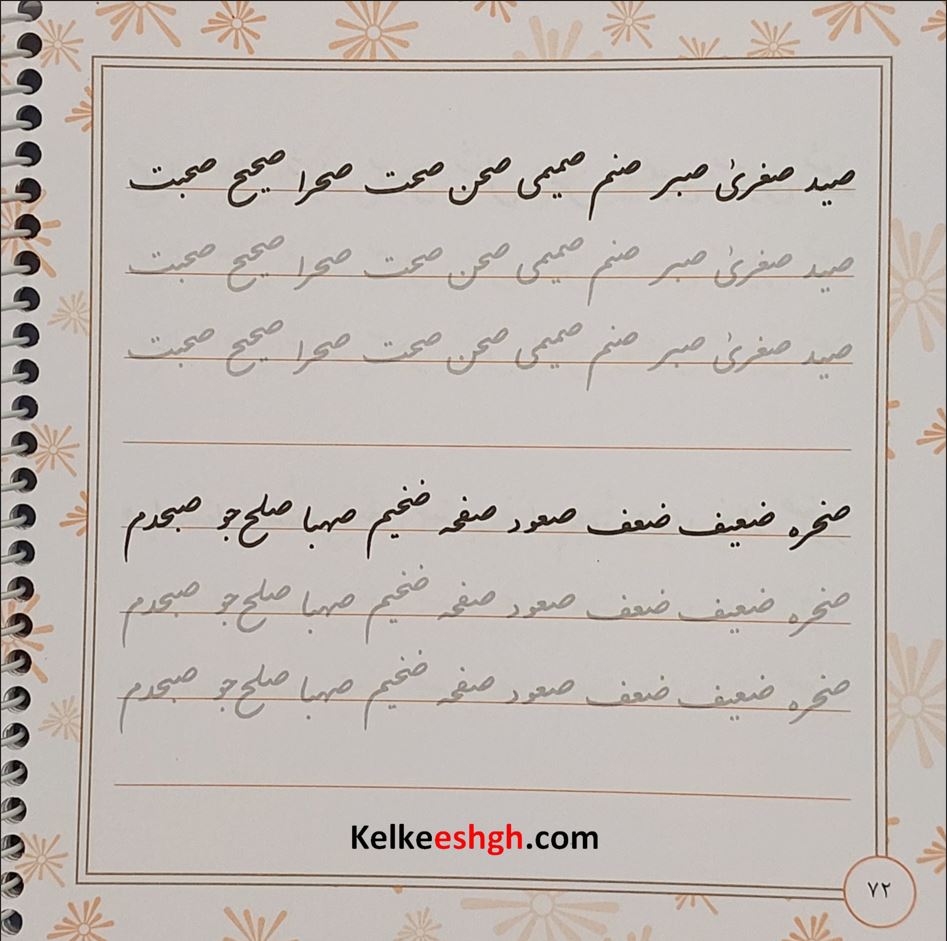 صید صغریٰ صبر صنم صمیمی صحن صحت صحرا صحیح صحبت
صید صغریٰ صبر صنم صمیمی صحن صحت صحرا صحیح صحبت
صید صغریٰ صبر صنم صمیمی صحن صحت صحرا صحیح صحبت
صخره ضعیف ضعف صعود صفحه ضخیم صهبا صلح‌جو صبحدم
صخره ضعیف ضعف صعود صفحه ضخیم صهبا صلح‌جو صبحدم
صخره ضعیف ضعف صعود صفحه ضخیم صهبا صلح‌جو صبحدم
Kelkeeshgh.com
۷۲